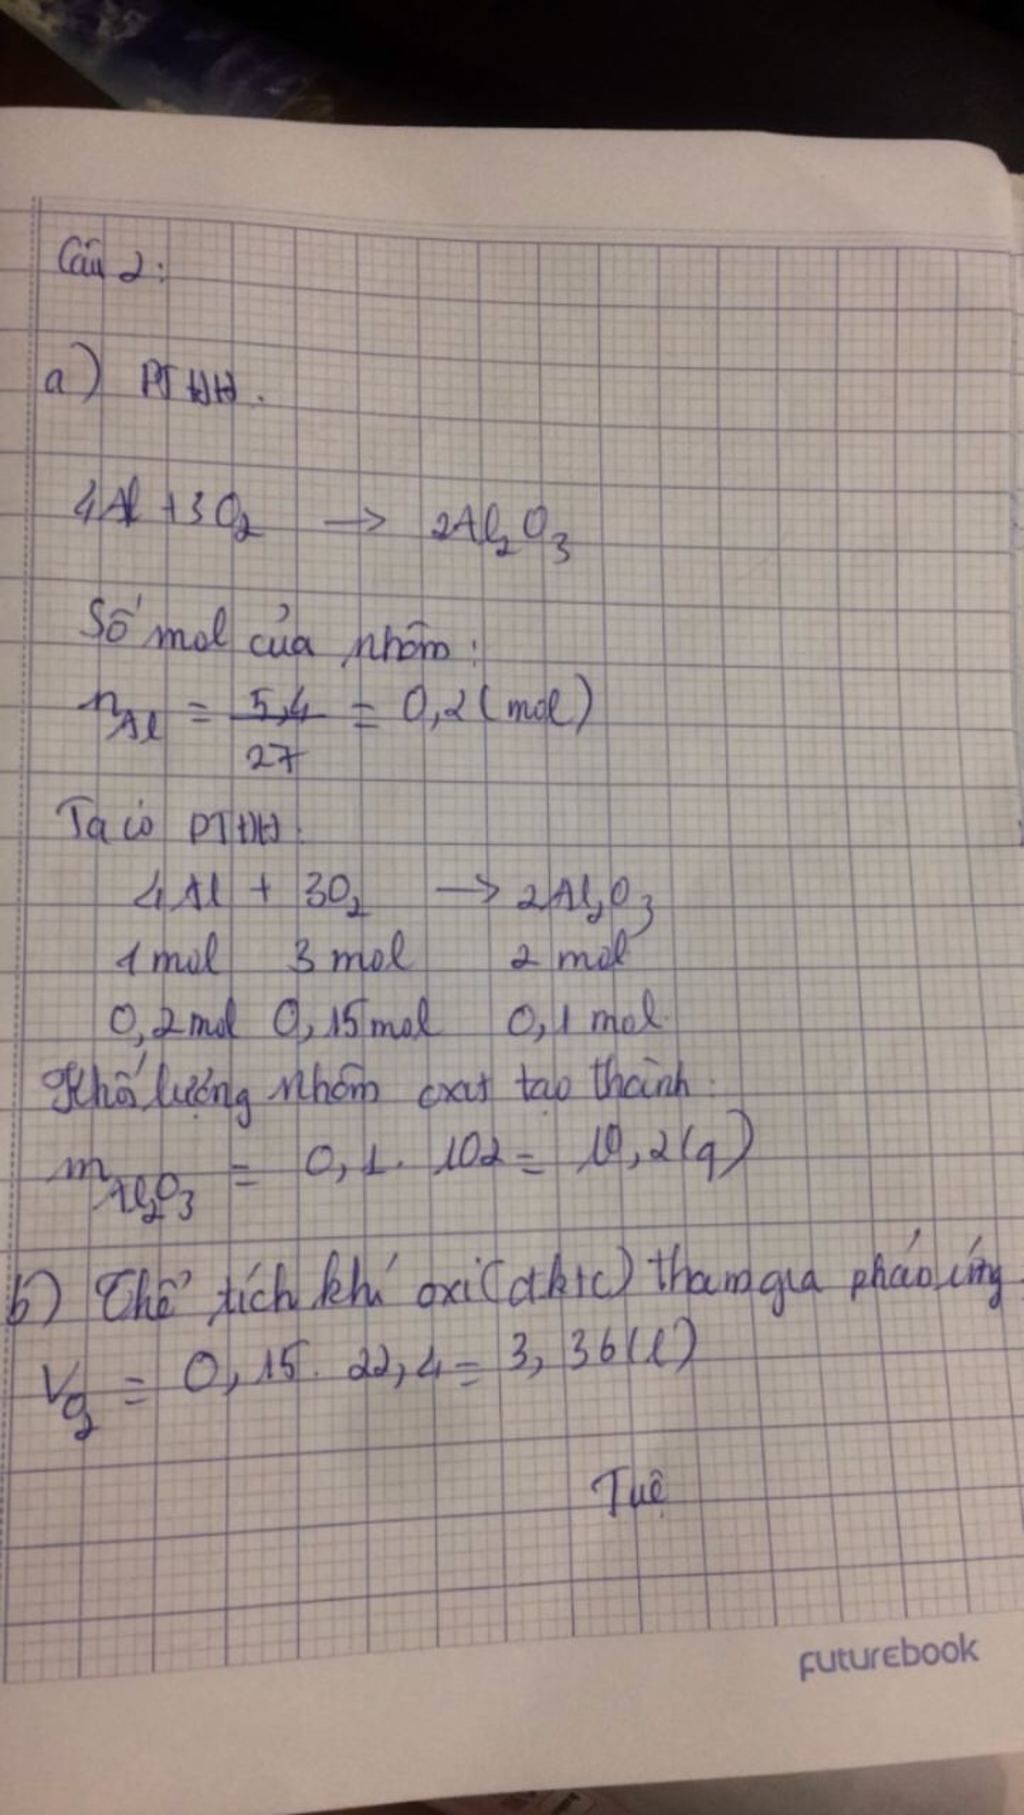 Câu 2:
a) PTHH.
4Al + 3O₂ → 2Al₂O₃
Số mol của nhôm:
nAl = 5,4/27 = 0,2 (mol)
Ta có PTHH:
4Al + 3O₂ → 2Al₂O₃
1 mol 3 mol 2 mol
0,2 mol 0,15 mol 0,1 mol
Khố lượng nhôm oxit tạo thành:
mAl₂O₃ = 0,1. 102 = 10,2 (g)
b) Thể tích khí oxi (đktc) tham gia phản ứng
VO₂ = 0,15. 22,4 = 3,36 (l)
Tuệ
FUTUREBOOK